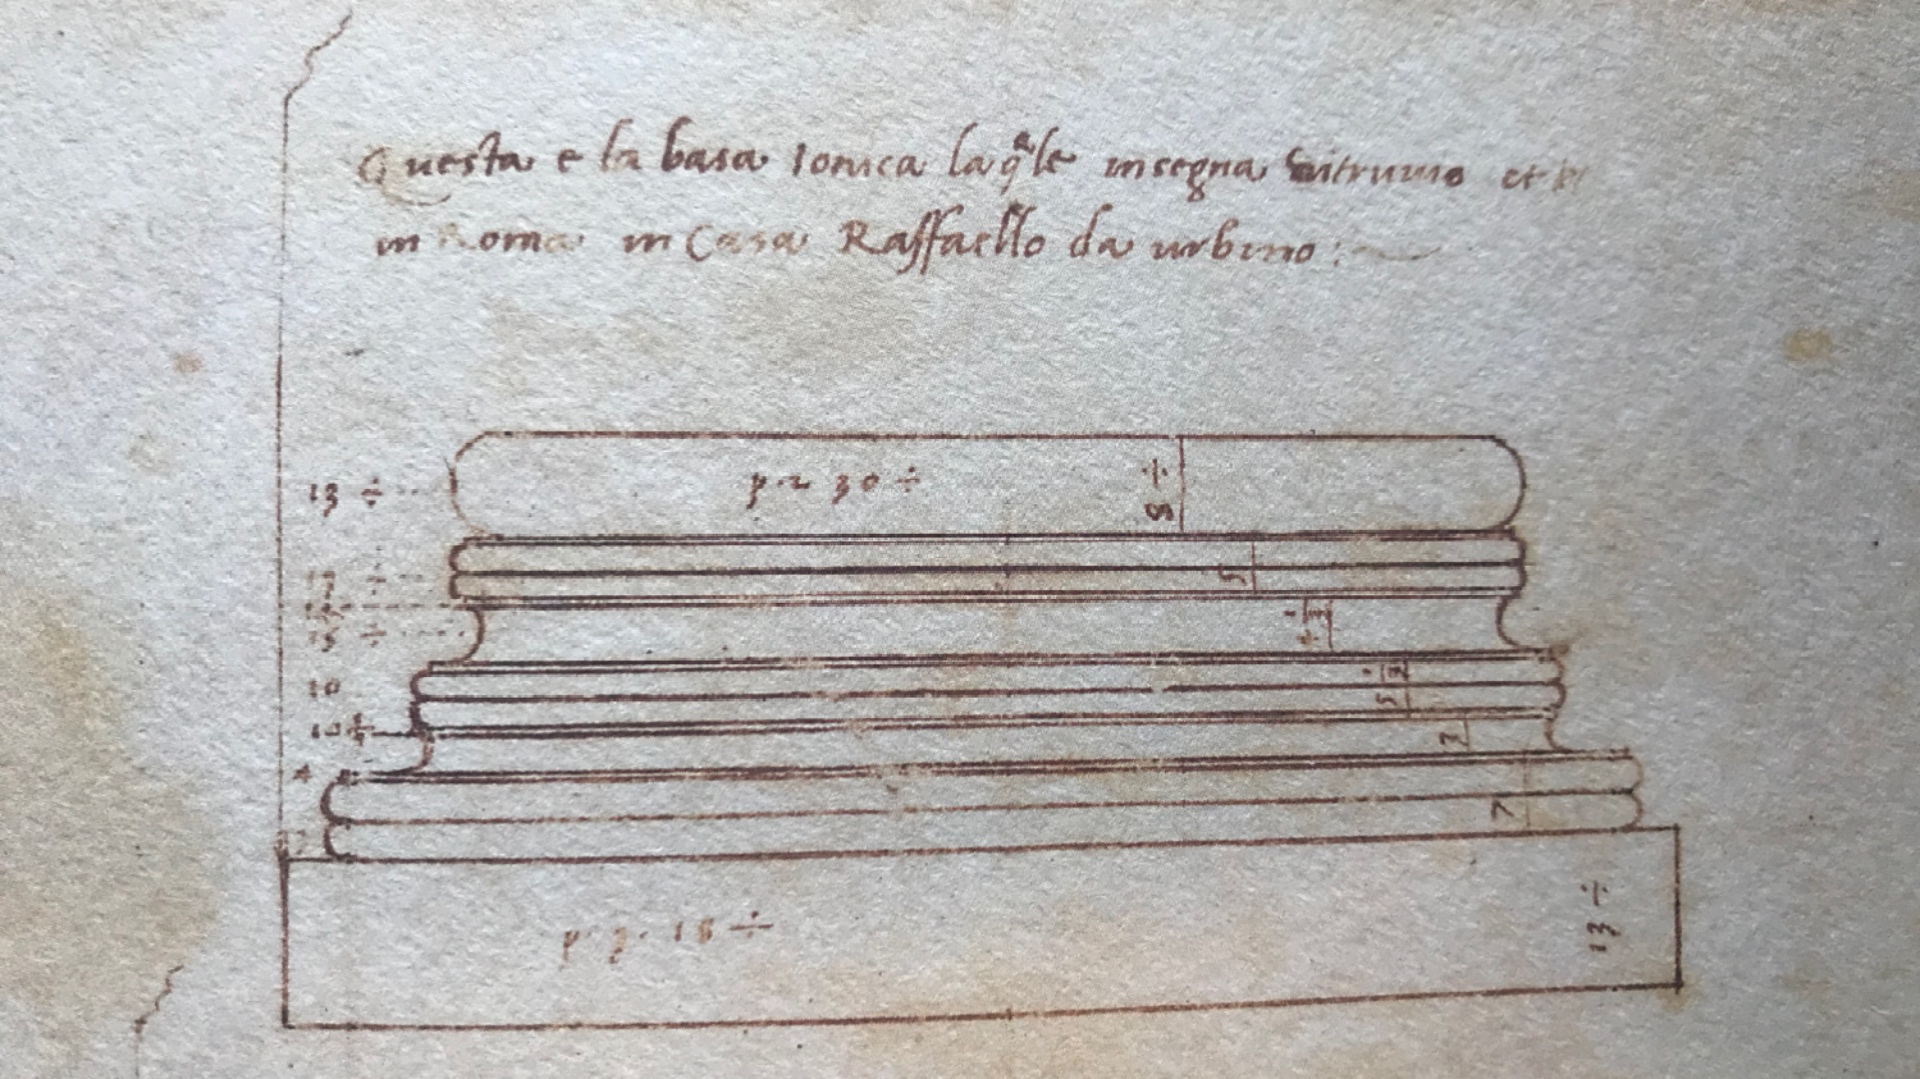 Questa e la basa Ionica la q̃le insegna Vitruuio et
in Roma in Casa Raffaello da urbino:
13 ÷
p 2 30 ÷
8 ÷
17 ÷
5
15 ÷
10
10 ÷
3
4
7
p. 3. 18 ÷
13 ÷